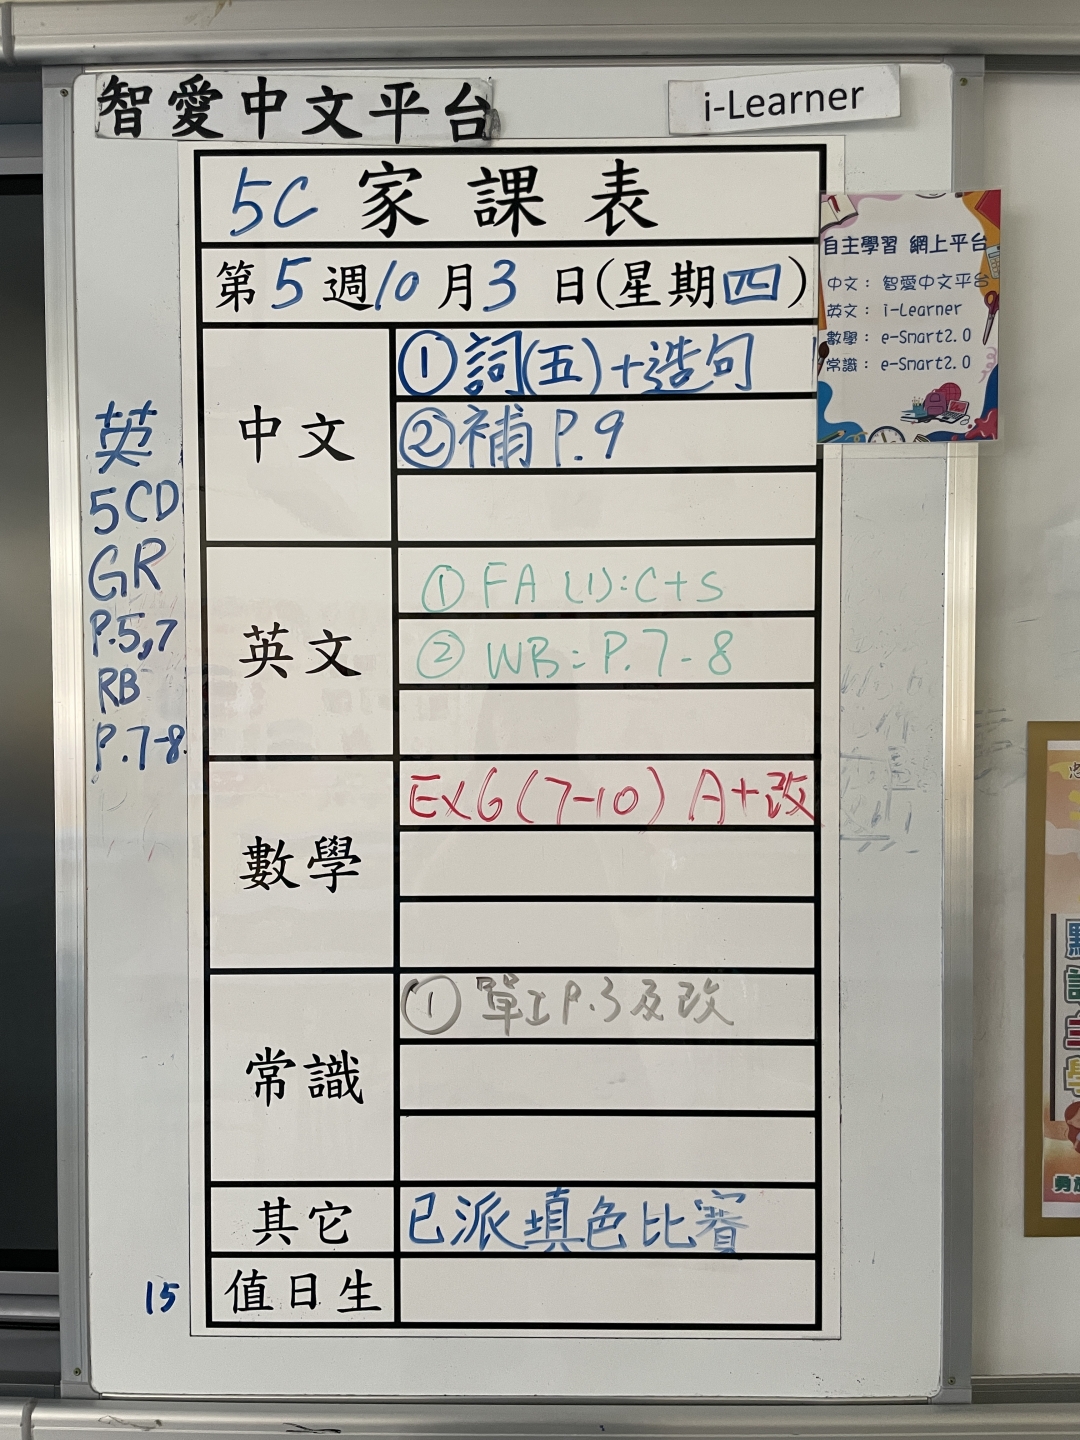 智愛中文平台
i-Learner
5C 家課表
第5週10月3日(星期四)
中文
①詞(五)+造句
②補P.9
英文
①FA (1):C+S
②WB:P.7-8
數學
Ex6(7-10) A+改
常識
① 單工P.3及改
其它
已派填色比賽
值日生
15
英
5CD
GR
P.5,7
RB
P.7-8
自主學習 網上平台
中文：智愛中文平台
英文：i-Learner
數學：e-Smart2.0
常識：e-Smart2.0